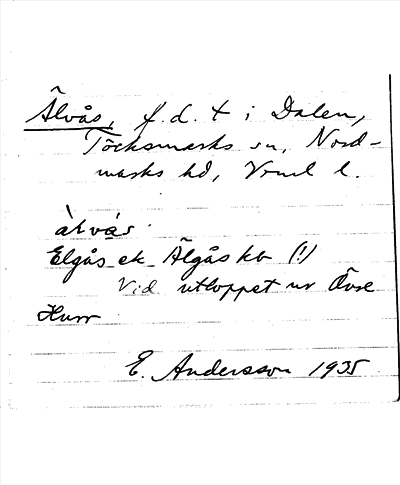 Älvås, f.d. t i Dalen,
Töcksmarks sn, Nord-
marks hd, Vrml l.
àlvás
Elgås ek Älgås kb (!)
Vid utloppet ur Övre
Hurr
E. Andersson 1935